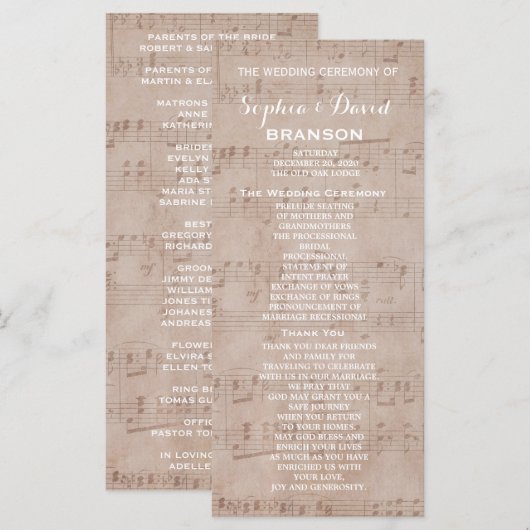 PARENTS OF THE BRIDE
ROBERT &
PARENTS OF
MARTIN &
MATRONS
ANNE
KATHERIN
BRIDES
EVELYN
KELLY
ADA
MARIA
SABRINE
BEST
GREGORY
RICHARD
GROOM
JIMMY
WILLIAM
JONES
JOHANES
ANDREAS
FLOWER
ELVIRA
ELLEN
RING
TOMAS
OFFIC
PASTOR
IN LOVING
ADELLE
THE WEDDING CEREMONY OF
Sophia & David
BRANSON
SATURDAY
DECEMBER 20, 2020
THE OLD OAK LODGE
The Wedding Ceremony
PRELUDE SEATING
OF MOTHERS AND
GRANDMOTHERS
THE PROCESSIONAL
BRIDAL
PROCESSIONAL
STATEMENT OF
INTENT PRAYER
EXCHANGE OF VOWS
EXCHANGE OF RINGS
PRONOUNCEMENT OF
MARRIAGE RECESSIONAL
Thank You
THANK YOU DEAR FRIENDS
AND FAMILY FOR
TRAVELING TO CELEBRATE
WITH US IN OUR MARRIAGE.
WE PRAY THAT
GOD MAY GRANT YOU A
SAFE JOURNEY
WHEN YOU RETURN
TO YOUR HOMES.
MAY GOD BLESS AND
ENRICH YOUR LIVES
AS MUCH AS YOU HAVE
ENRICHED US WITH
YOUR LOVE,
JOY AND GENEROSITY.